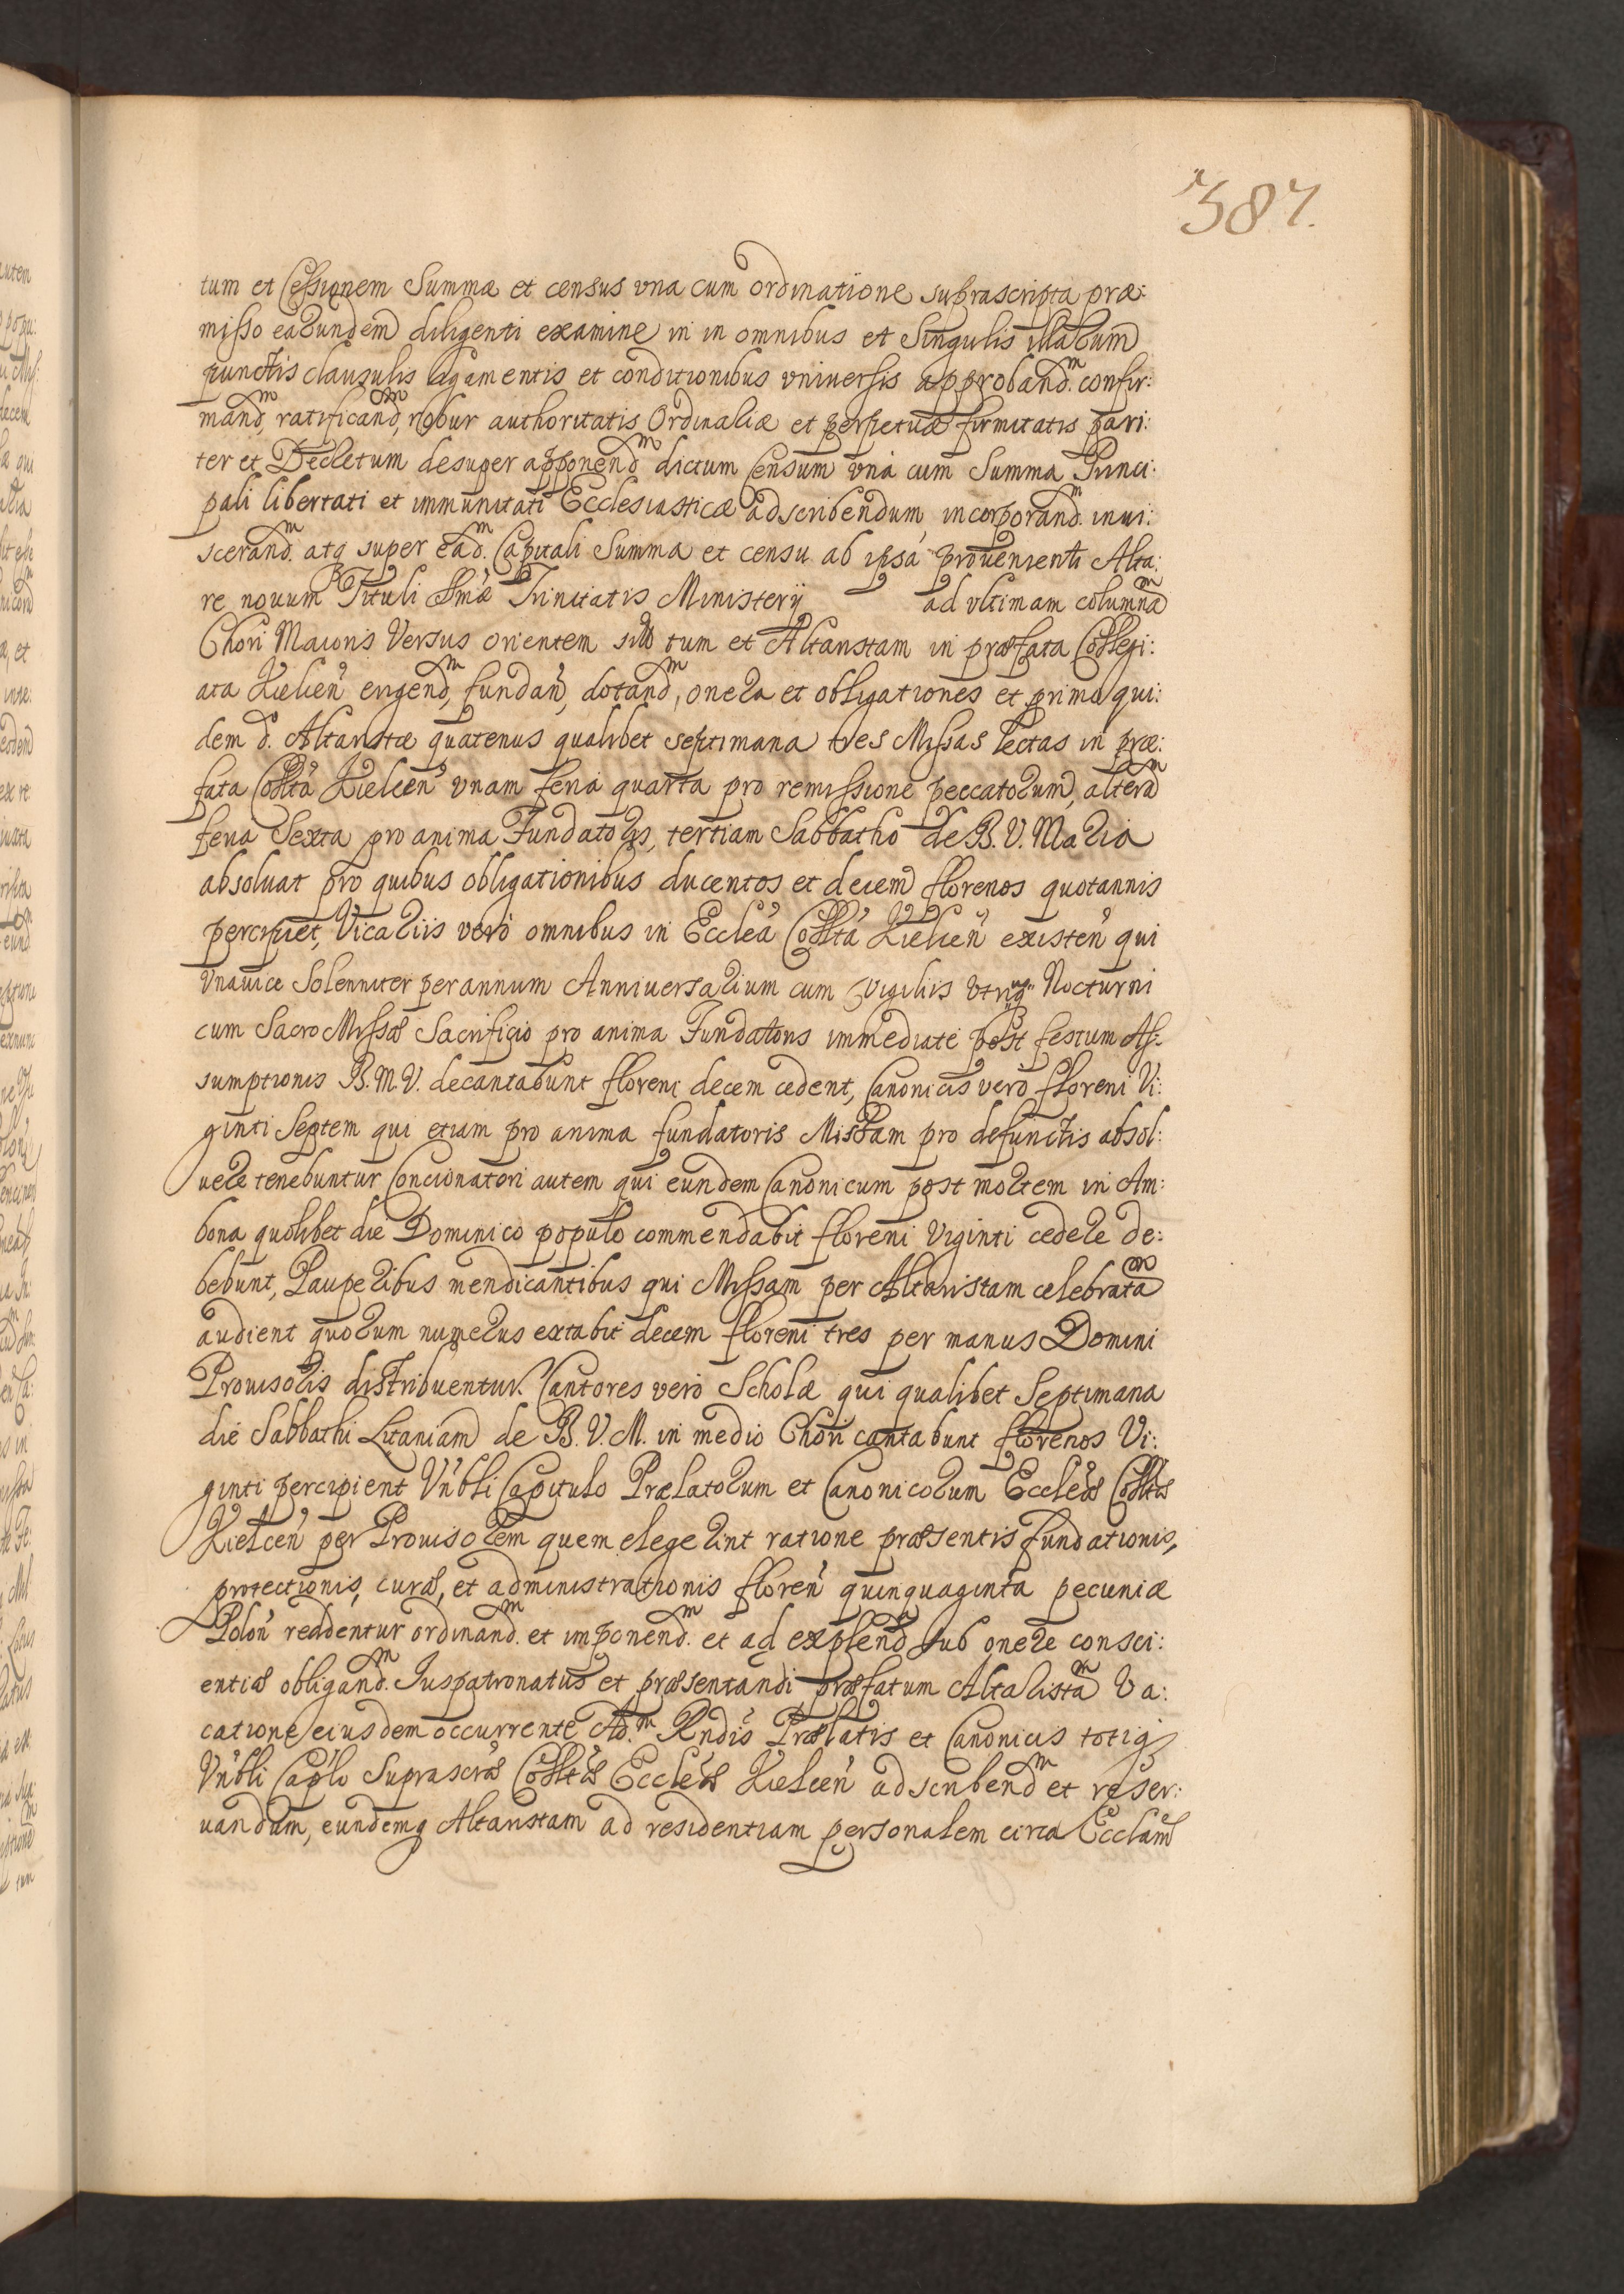 387.
tum et Cessionem Summæ et census vna cum ordinatione suprascripta præ:
misso earundem diligenti examine in in omnibus et Singulis illarum
punctis clausulis ligamentis et conditionibus vniuersis approband.m confir:
mandm, ratificandm, robur authoritatis Ordinariæ et perpetuæ firmitatis pari:
ter et Decretum desuper apponendm dictum Censum vna cum Summa Princi:
pali libertati et immunitati Ecclesiasticæ adscribendum incorporand.m inui:
scerand.m atq super ead.m Capitali Summa et censu ab ipsa prouenienti Alta:
re nouum Tituli SSmæ Trinitatis Ministerij ad vltimam columnam
Chori Maioris Versus orientem situm et Altaristam in præfata Collegi:
ata Kielcen̄ erigendm, fundan̄, dotandm, onera et obligationes et primo qui:
dem d. Altaristæ quatenus qualibet septimana tres Missas lectas in præ:
fata Collta Kielcen̄ vnam feria quarta pro remissione peccatorum, alteram
feria Sexta pro anima Fundatoris, tertiam Sabbatho de B. V. Maria
absoluat pro quibus obligationibus ducentos et decem florenos quotannis
percipiet, Vicariis vero omnibus in Ecclea Collta Kielcen̄ existen̄ qui
vnauice Solenniter per annum Anniuersarium cum vigiliis vtriq Nocturni
cum Sacro Missæ Sacrificio pro anima Fundatoris immediate post festum As:
sumptionis B. M. V. decantabunt floreni decem cedent, Canonicis vero floreni Vi:
ginti Septem qui etiam pro anima fundatoris Missam pro defunctis absol:
uere tenebuntur Concionatori autem qui eundem Canonicum post mortem in Am:
bona quolibet die Dominico populo commendabit floreni Viginti cedere de:
bebunt, Pauperibus mendicantibus qui Missam per Altaristam celebratam
audient quorum numerus extabit decem floreni tres per manus Domini
Prouisoris distribuentur. Cantores vero Scholæ qui qualibet Septimana
die Sabbathi Litaniam de B. V. M. in medio Chori cantabunt florenos Vi:
ginti percipient Vn̄bli Capitulo Prælatorum et Canonicorum Eccleæ Colltæ
Kielcen̄ per Prouisorem quem elegerint ratione præsentis Fundationis,
protectionis, curæ, et administrationis floren̄ quinquaginta pecuniæ
Polon̄ reddentur ordinand.m et imponend.m et ad explend sub onere consci:
entiæ obligand.m Juspatronatus et præsentandi præfatum Altaristam Va:
catione eiusdem occurrente Ad.m Rndis Prælatis et Canonicis totiq
Vn̄bli Caplo Suprascræ Colltæ Eccleæ Kielcen̄ adscribendm et reser:
uandum, eundemq Altaristam ad residentiam personalem circa Ecclam